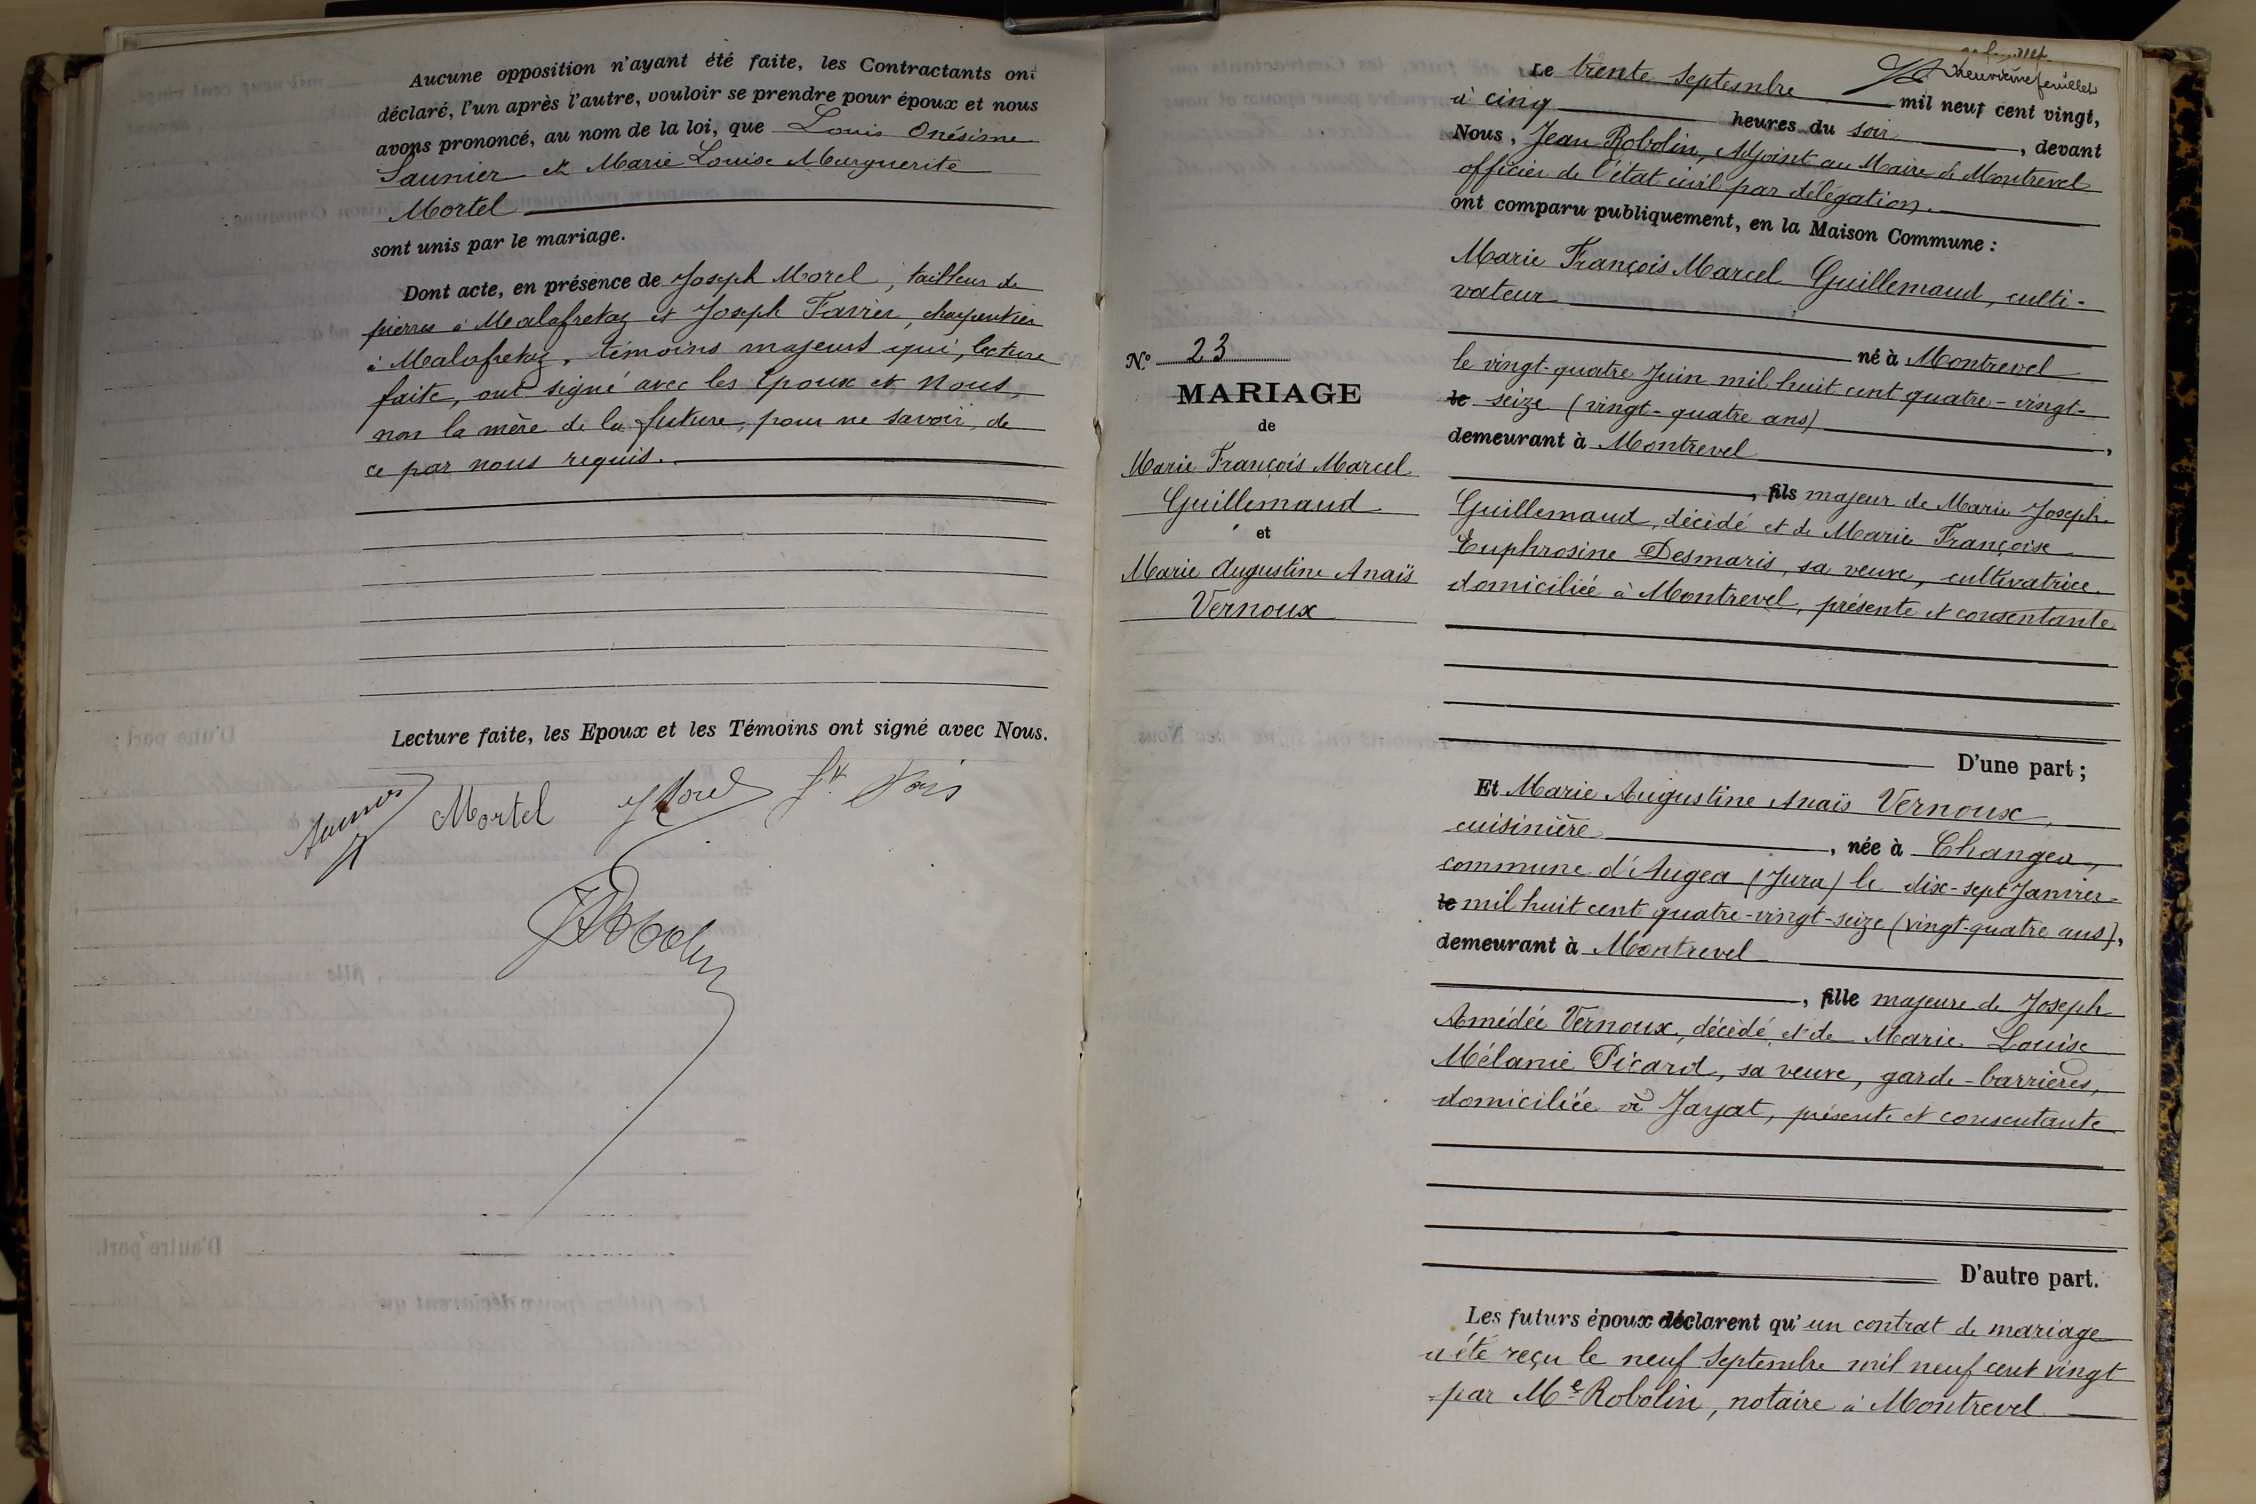 Aucune opposition n'ayant été faite, les Contractants ont
déclaré, l'un après l'autre, vouloir se prendre pour époux et nous
avons prononcé, au nom de la loi, que Louis Onésime
Saunier et Marie Louise Marguerite
Mortel
sont unis par le mariage.
Dont acte, en présence de Joseph Morel, tailleur de
pierres à Malafretaz et Joseph Favier, charpentier
à Malafretaz, témoins majeurs qui, lecture
faite, ont signé avec les époux et Nous,
non la mère de la future, pour ne savoir, de
ce par nous requis.
Lecture faite, les Epoux et les Témoins ont signé avec Nous.
Saunier Mortel J Morel
J Robolin
neuvième feuillet
Le trente Septembre mil neuf cent vingt,
à cinq heures du soir, devant
Nous, Jean Robolin, Adjoint au Maire de Montrevel
officier de l'état civil par délégation.
ont comparu publiquement, en la Maison Commune :
Marie François Marcel Guillemaud, culti-
vateur
né à Montrevel
le vingt-quatre Juin mil huit cent quatre-vingt-
le seize (vingt-quatre ans),
demeurant à Montrevel
, fils majeur de Marie Joseph
Guillemaud, décédé et de Marie Françoise
Euphrosine Desmaris, sa veuve, cultivatrice
domiciliée à Montrevel, présente et consentante
D'une part ;
N° 23
MARIAGE
de
Marie François Marcel
Guillemaud
et
Marie Augustine Anaïs
Vernoux
Et Marie Augustine Anaïs Vernoux,
cuisinière, née à Changea,
commune d'Augea (Jura) le dix-sept Janvier
le mil huit cent quatre-vingt-seize (vingt-quatre ans),
demeurant à Montrevel
, fille majeure de Joseph
Amédée Vernoux, décédé et de Marie Louise
Mélanie Picard, sa veuve, garde-barrières,
domiciliée à Jayat, présente et consentante
D'autre part.
Les futurs époux déclarent qu'un contrat de mariage
a été reçu le neuf Septembre mil neuf cent vingt
par Me Robolin, notaire à Montrevel